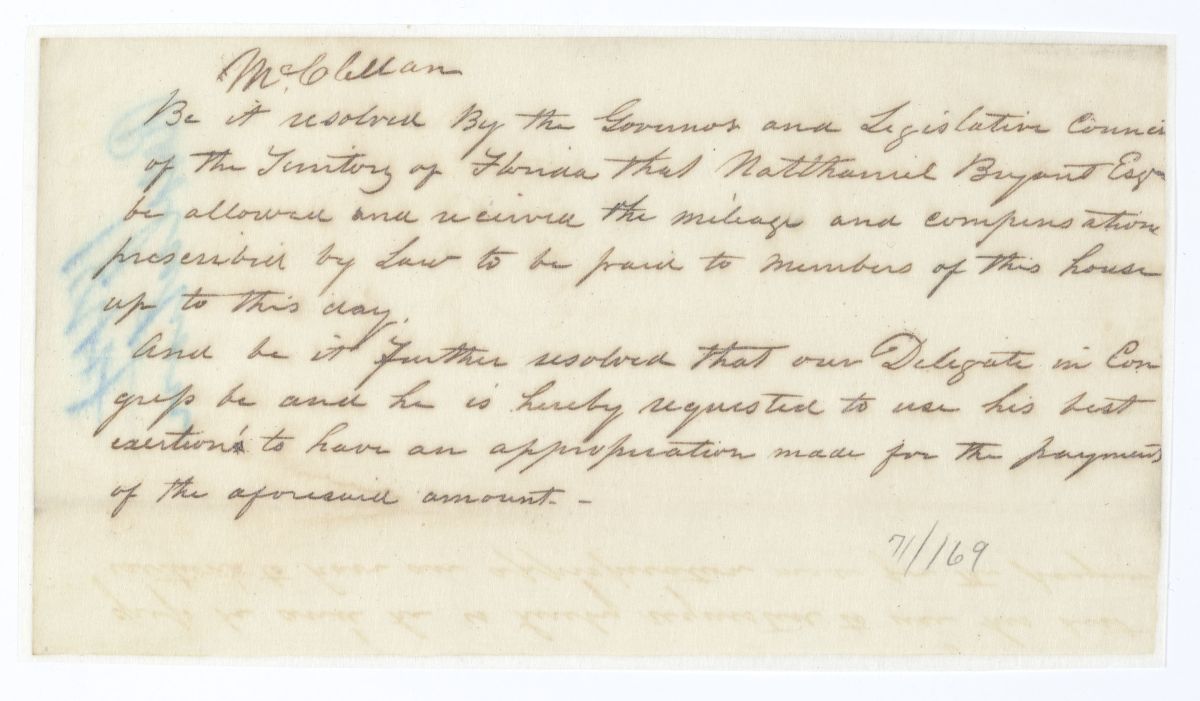 McClellan
Be it resolved By the Governor and Legislative Council
of the Territory of Florida that Natthaniel Bryant Esqr
be allowed and received the mileage and compensation
prescribed by Law to be paid to members of this house
up to this day.
And be it further resolved that our Delegate in Con
gress be and he is hereby requested to use his best
exertions to have an appropriation made for the payment
of the aforesaid amount. -
71/169